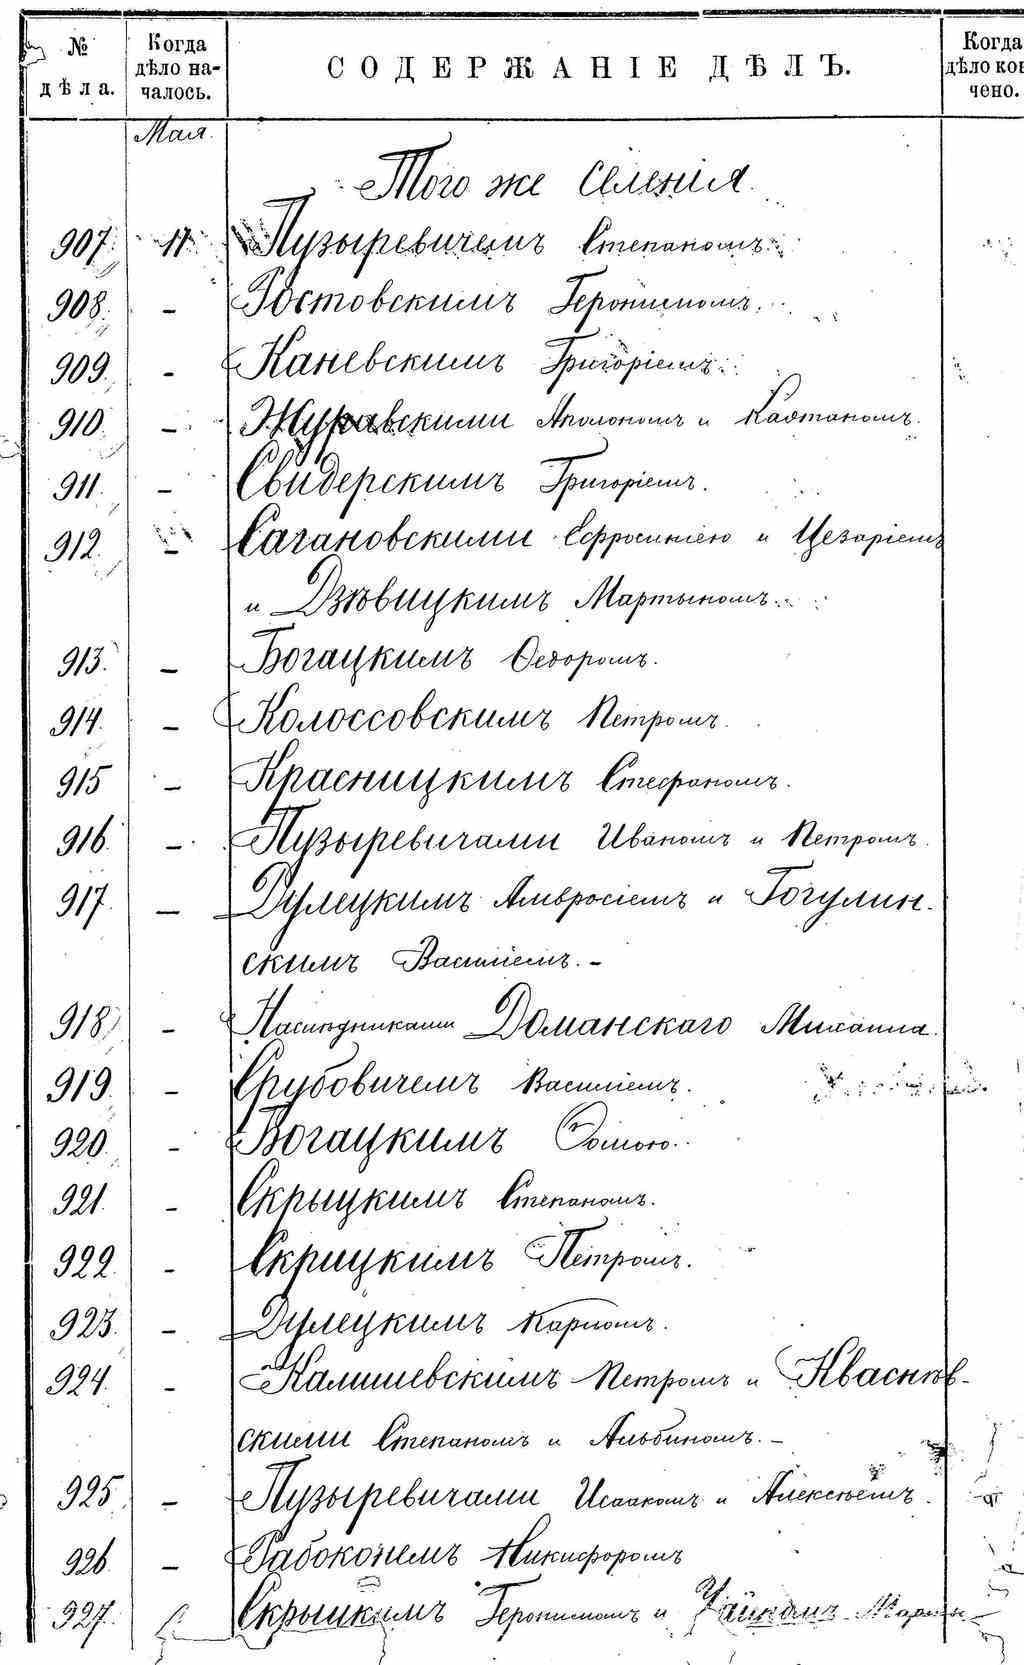 № дѣла. Когда дѣло началось. СОДЕРЖАНІЕ ДѢЛЪ. Когда дѣло кон чено.
Мая.
Того же селенія.
907. 17 Пузыревичемъ Степаномъ.
908. - Ростовскимъ Геронимомъ.
909. - Каневскимъ Григоріемъ.
910. - Журавскими Аполономъ и Каэтаномъ.
911. - Свидерскимъ Григоріемъ.
912. - Сагановскими Ефросиніею и Цезаріемъ
и Дзѣвицкимъ Мартыномъ.
913. - Богацкимъ Ѳедоромъ.
914. - Колоссовскимъ Петромъ.
915 - Красницкимъ Стефаномъ.
916. - Пузыревичами Иваномъ и Петромъ.
917. - Дулецкимъ Амвросіемъ и Гогулин-
скимъ Василіемъ. -
918. - Наслѣдниками Доманскаго Михаила.
919. - Срубовичемъ Василіемъ.
920. - Богацкимъ Ѳомою.
921. - Скрыцкимъ Степаномъ.
922. - Скрицкимъ Петромъ.
923. - Дулецкимъ Карпомъ.
924. - Калишевскимъ Петромъ и Кваснѣв-
скими Степаномъ и Альбиномъ. -
925. - Пузыревичами Исаакомъ и Алексѣемъ.
926. - Рабоконемъ Никифоромъ
927. Скрыцкимъ Геронимомъ и